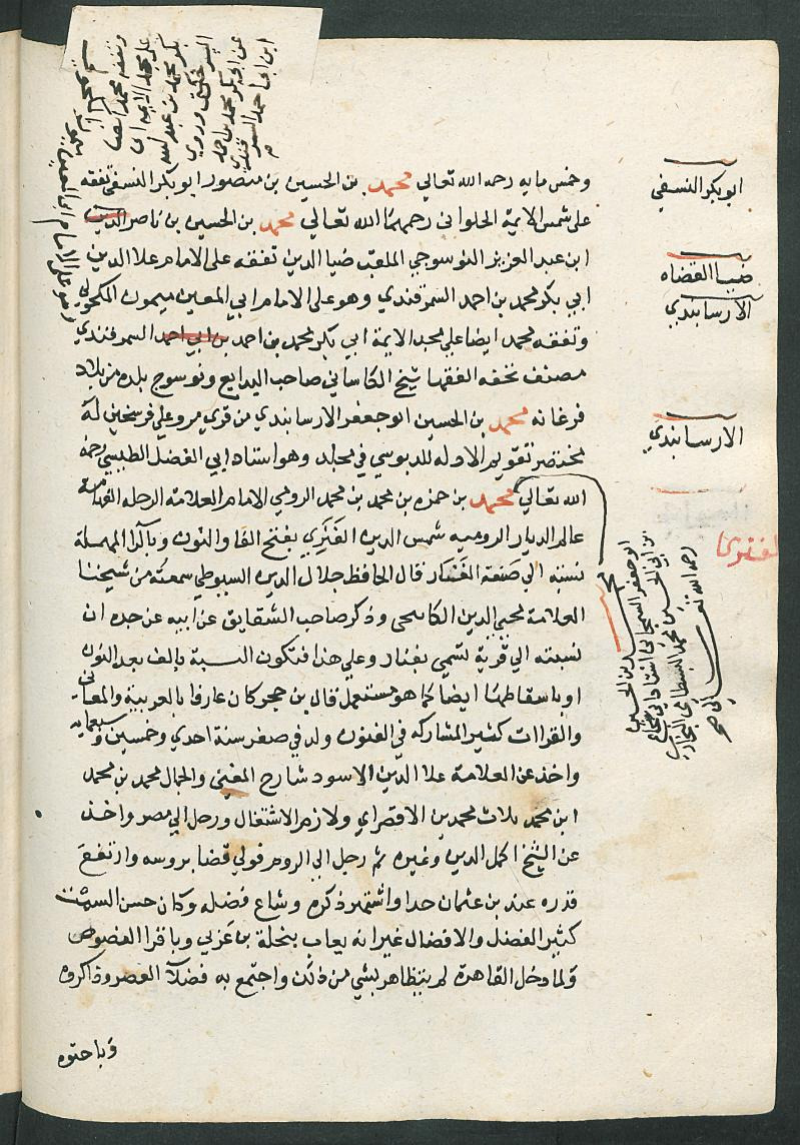 وخمس مايه رحمه الله تعالي محمد بن الحسين بن منصور ابو بكر النسفي تفقه
علي شمس الايمة الحلواني رحمهما الله تعالي محمد بن الحسين بن ناصر الدين
ابن عبد العزيز النوسوجي الملقب ضيا الدين تفقه علي الامام علا الدين
ابي بكر محمد بن احمد السمرقندي وهو علي الامام ابي المعين ميمون المكحولي
وتفقه محمد ايضا علي مجد الايمة ابي بكر محمد بن احمد بن ابي احمد السمرقندي
مصنف تحفه الفقها شيخ الكاساني صاحب البدايع ونوسوج بلده من بلاد
فرغانه محمد بن الحسين ابو جعفر الارسابندي من قري مرو علي فرسخين له
مختصر تقويم الادله للدبوسي في مجلد وهو استاد ابي الفضل الطبسي رحمه
الله تعالي محمد بن حمزه بن محمد بن محمد الرومي الامام العلامة الرحله الفهامة
عالم الديار الروميه شمس الدين الفنري بفتح الفا والنون وبالرا المهملة
نسبته الي صنعة الفنار قال الحافظ جلال الدين السيوطي سمعته من شيخنا
العلامة محيي الدين الكافيجي وذكر صاحب الشقايق عن ابيه عن جده ان
نسبته الي قرية تسمي بفنار وعلي هذا فتكون النسبة بالف بعد النون
او باسقاطها ايضا كما هو مستعمل قال بن حجر كان عارفا بالعربية والمعاني
والقراات كثير المشاركه في الفنون ولد في صفر سنة احدي وخمسين وسبعمايه
واخذ عن العلامة علا الدين الاسود شارح المغني والجمال محمد بن محمد
ابن محمد ثلاث محمد بن الاقصراي ولازم الاشتغال ورحل الي مصر واخذ
عن الشيخ اكمل الدين وغيره ثم رحل الي الروم فولي قضا بروسه وارتفع
قدره عند بن عثمان جدا واشتهر ذكره وشاع فضله وكان حسن السمت
كثير الفضل والافضال غير انه يعاب بنحلة بن عربي وباقرا الفصوص
ولما دخل القاهرة لم يتظاهر بشي من ذلك واجتمع به فضلا العصر وذاكروه
وباحثوه
ابو بكر النسفي
ضيا القضاه
الارسابندي
الارسابندي
الفنري
محمد بن الحسين
ابو جعفر السمنجاني استاد ابي شجاع
بن ابي الحسن محمد البسطامي البخاري
رحمه الله تعالي
وهو علي الامام ابي المعين